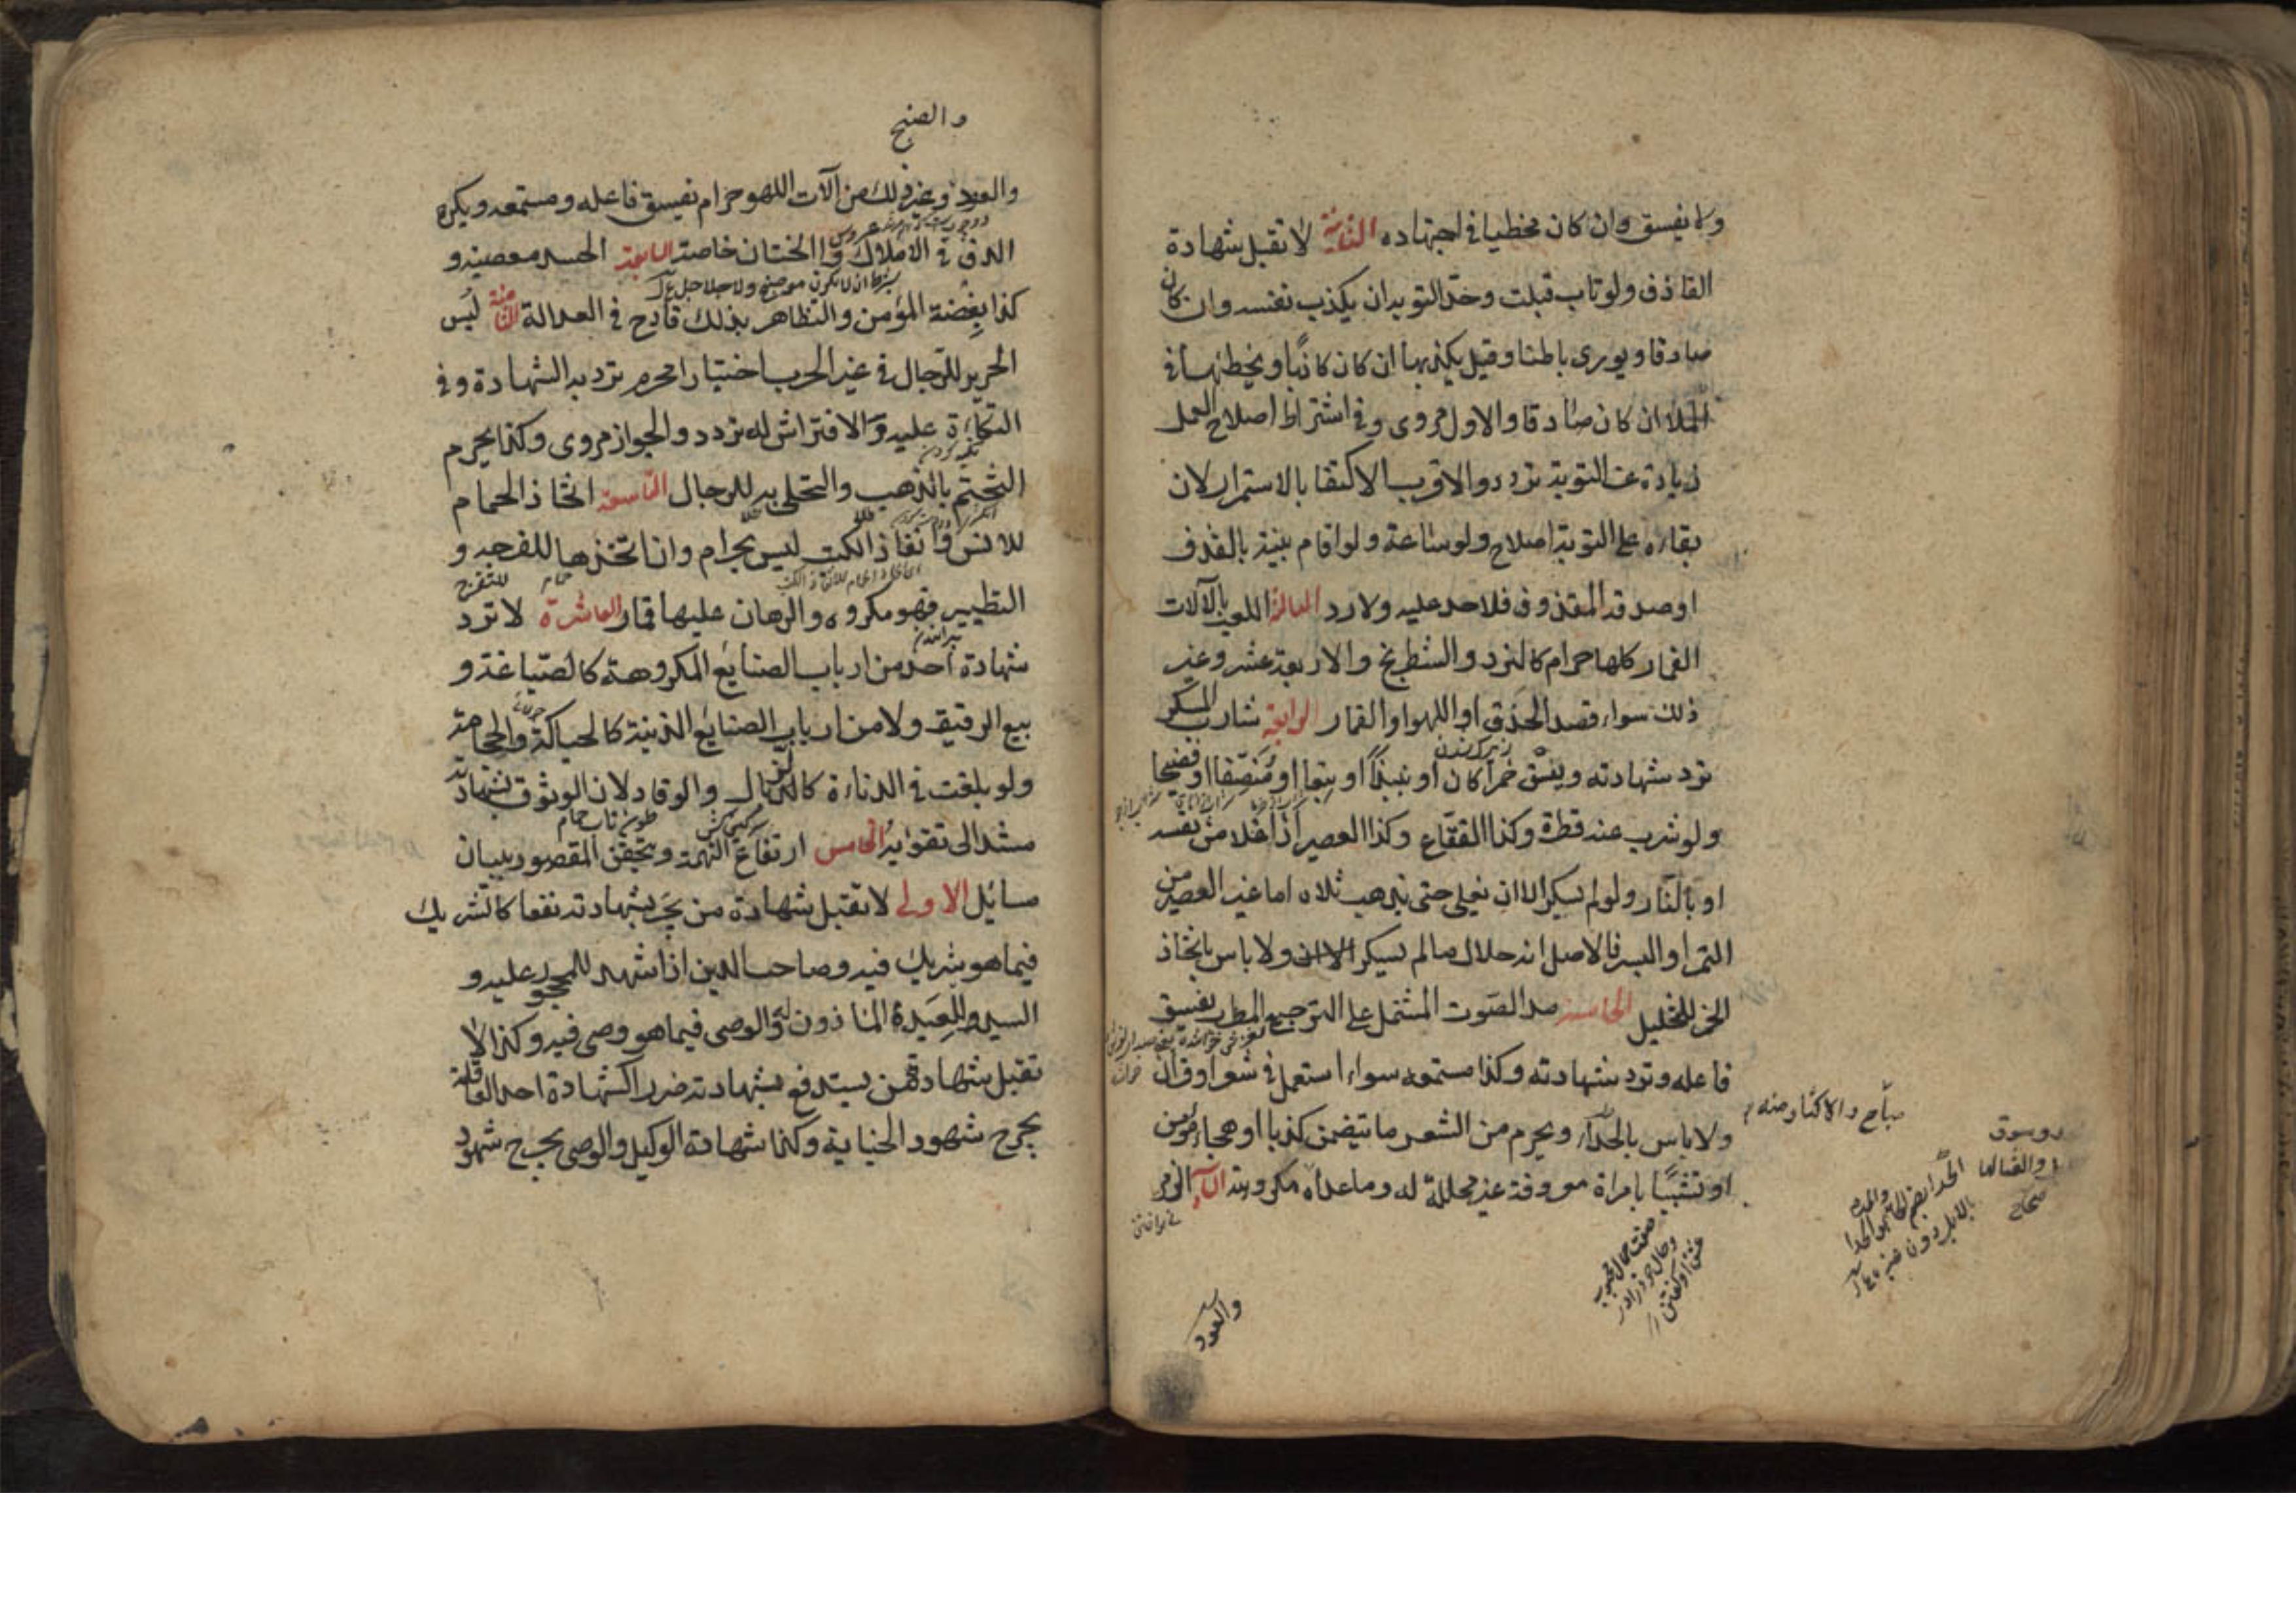 ولا يفسق وان كان مخطيا في اجتهاده الثانية لا تقبل شهادة
القاذف ولو تاب قبلت وحد التوبه ان يكذب نفسه وان كان
صادقا ويورى باطنا وقيل يكذبها ان كان كاذبا ويخطئها في
الملا ان كان صادقا والاول مروى وفي اشتراط اصلاح العمل
زيادة عن التوبة تردد والاقرب الاكتفا بالاستمرار لان
بقاءه على التوبة اصلاح ولو ساعة ولو اقام بينة بالقذف
او صدقه المقذوف فلا حد عليه ولا رد الثالثة اللعب بالآلات
القمار كلها حرام كالنرد والشطرنج والاربعة عشر وغير
ذلك سواء قصد الحذق او اللهو او القمار الرابعة شارب المسكر
ترد شهادته ويفسق خمرا كان او نبيذا او بتعا او منصفا او فضيخا
ولو شرب عنه قطرة وكذا الفقاع وكذا العصير اذا غلا من نفسه
او بالنار ولو لم يسكر الا ان يغلى حتى يذهب ثلثاه اما غير العصير من
التمر او البسر فالاصل انه حلال ما لم يسكر ولا باس باتخاذ
الخمر للتخليل الخامسة مد الصوت المشتمل على الترجيع المطرب يفسق
فاعله وترد شهادته وكذا مستمعه سواء استعمل في شعر او قرآن
ولا باس بالحداء ويحرم من الشعر ما تضمن كذبا او هجاء مؤمن
او تشبيبا بامراة معروفة غير محللة له وما عداه مباح والاكثار منه مكروه السادسة الزمر
والعود
والصنج
والعود وغير ذلك من آلات اللهو حرام يفسق فاعله ومستمعه ويكره
الدف في الاملاك والختان خاصة السابعة الحسد معصية و
كذا بغضة المؤمن والتظاهر بذلك قادح في العدالة الثامنة لبس
الحرير للرجال في غير الحرب اختيارا محرم ترد به الشهادة وفي
التكاءة عليه والافتراش له تردد والجواز مروى وكذا يحرم
التختم بالذهب والتحلى به للرجال التاسعة اتخاذ الحمام
للانس وانفاذ الكتب ليس بحرام وان اتخذها للفرجه و
التطيير فهو مكروه والرهان عليها قمار العاشرة لا ترد
شهادة احد من ارباب الصنايع المكروهة كالصياغة و
بيع الرقيق ولا من ارباب الصنايع الدنية كالحياكة والحجامة
ولو بلغت في الدناءة كالزبال والوقاد لان الوثوق بشهادته
مستند الى تقواه الخامس ارتفاع التهمة ويتحقق المقصود ببيان
مسائل الاولى لا تقبل شهادة من يجر بشهادته نفعا كالشريك
فيما هو شريك فيه وصاحب الدين اذا شهد للمحجور عليه و
السيد لعبده الماذون له والوصى فيما هو وصى فيه وكذا لا
تقبل شهادة من يستدفع بشهادته ضررا كشهادة احد العاقلة
بجرح شهود الجناية وكذا شهادة الوكيل والوصى بجرح شهود